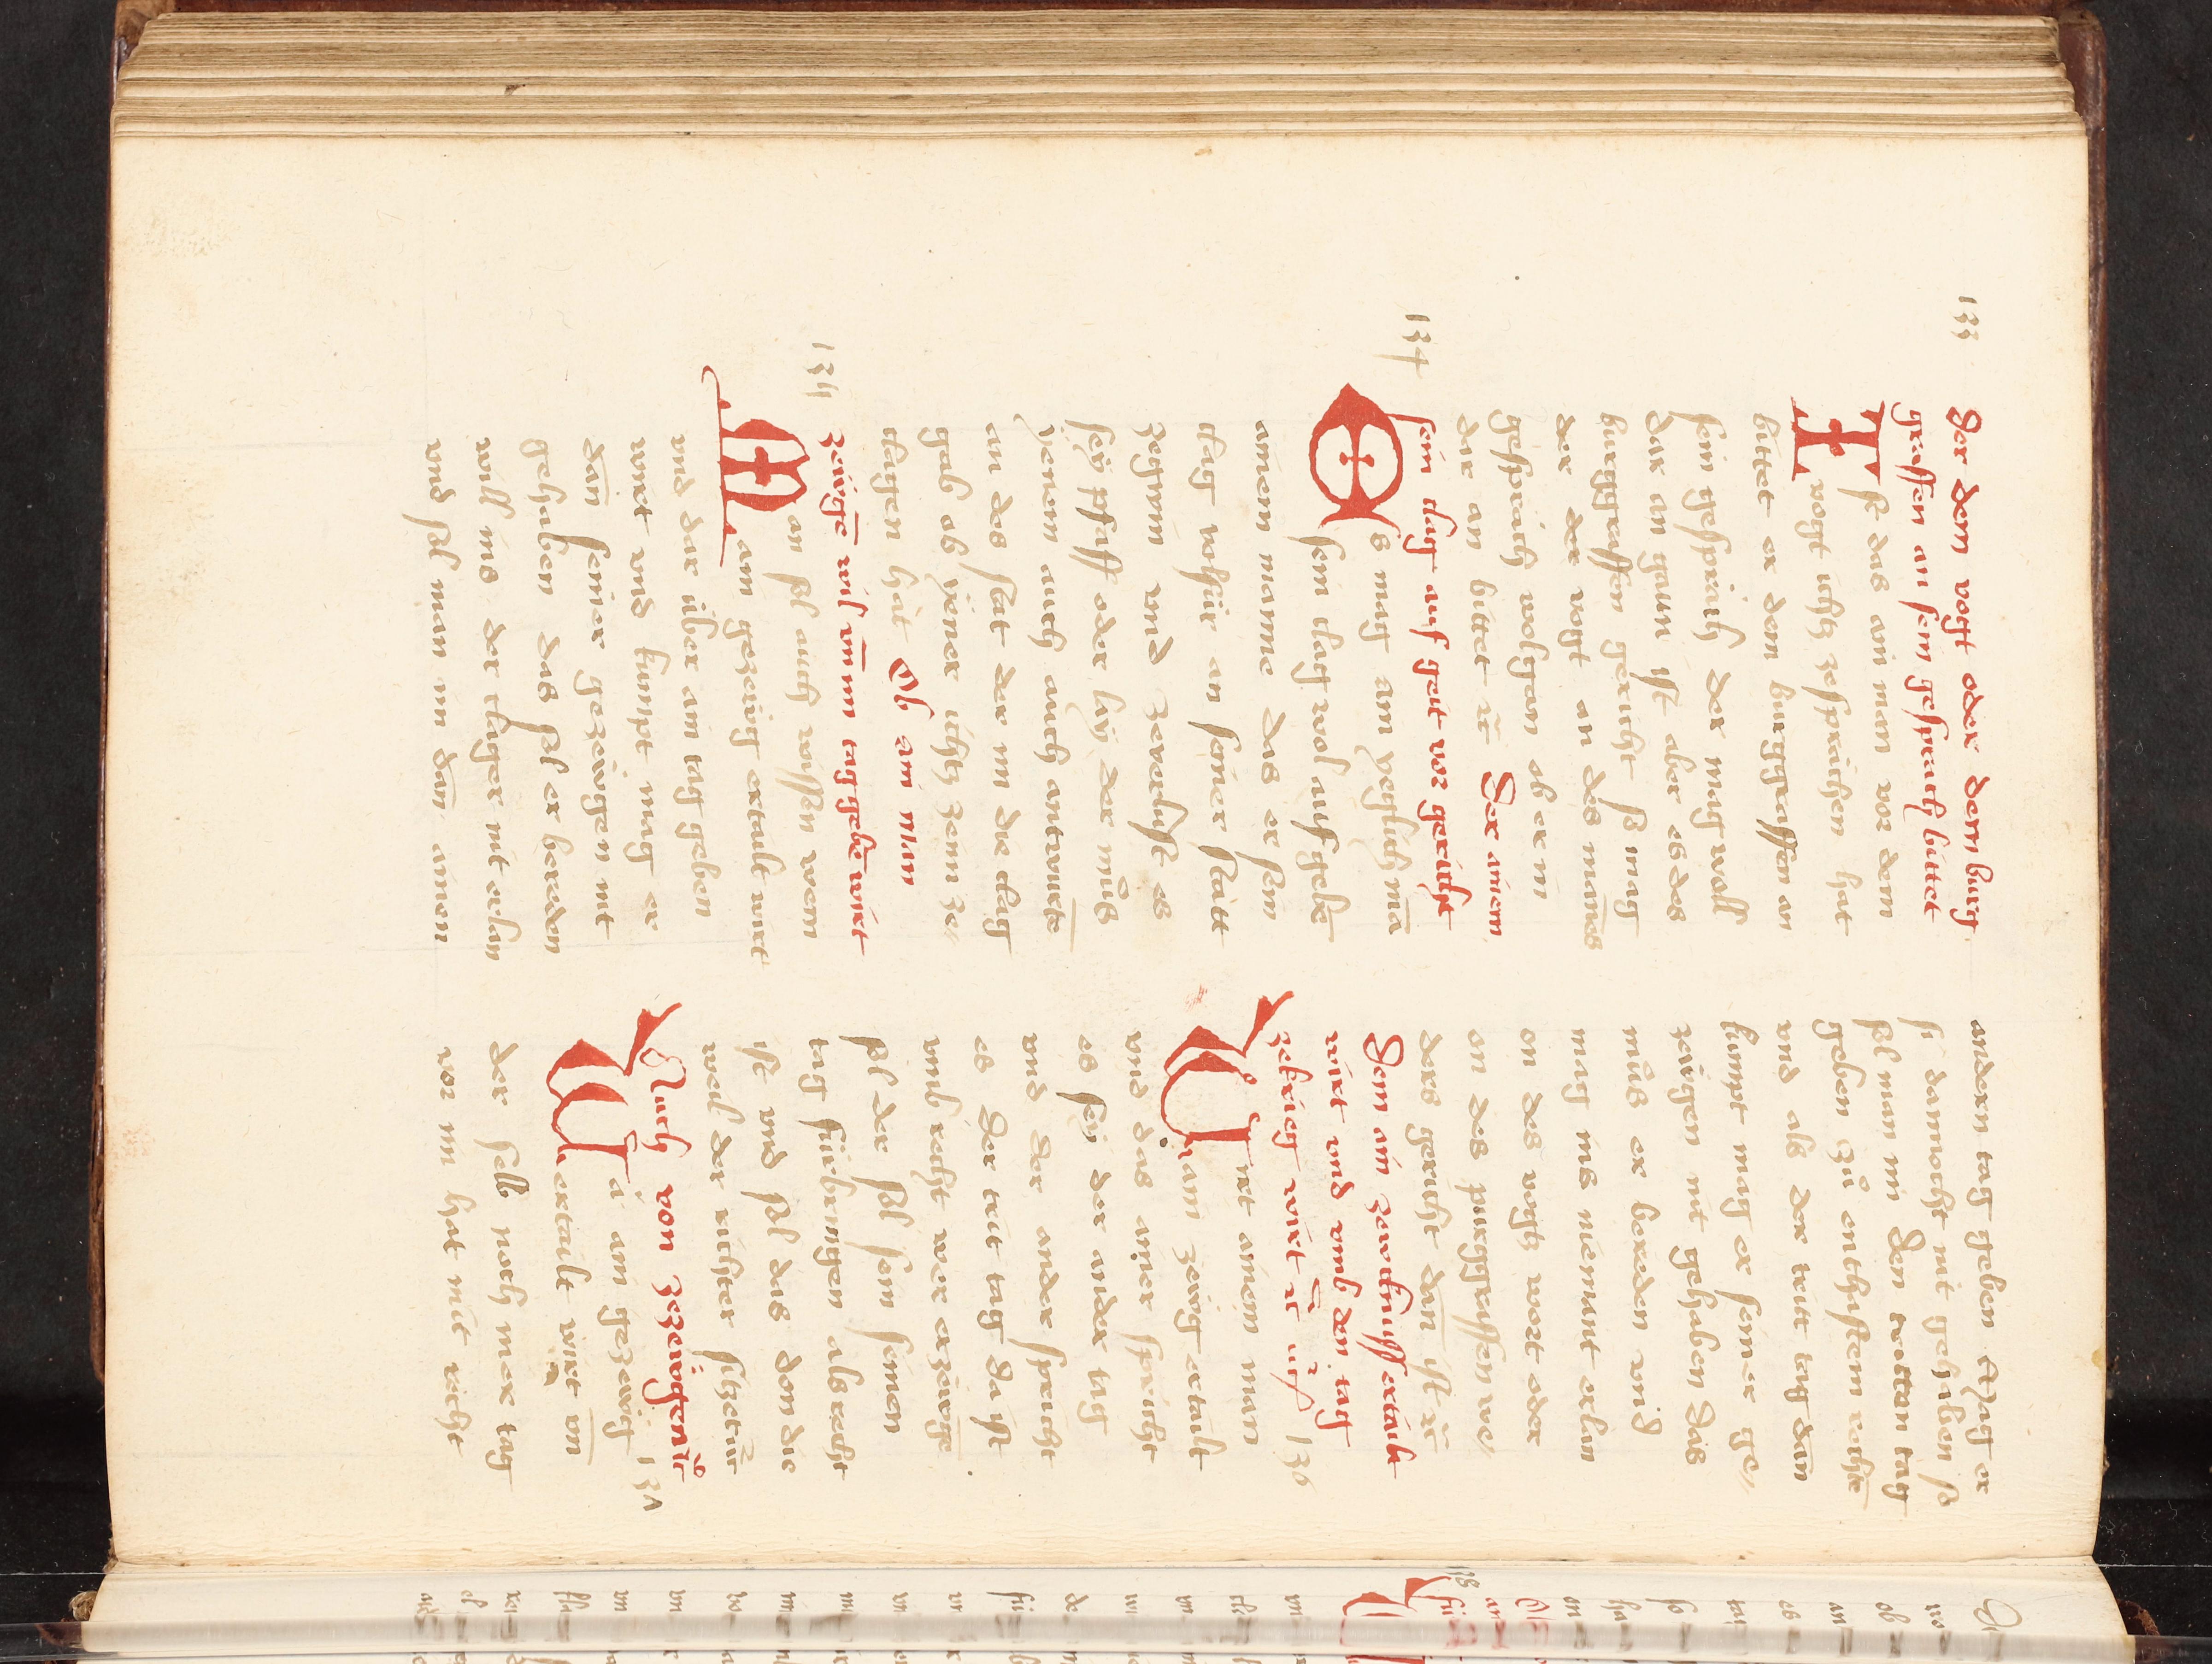 133
Der dem vogt oder dem burg
graffen an sein gesprach bittet
Ist das ain man vor dem
vogt ichtz zesprächen hat
bittet er dem burggraffen an
sein gespräch der mag woll
dar an gaun ist aber es des
burggraffen gericht so mag
der der vogt an des mañes
gespräch wolgan ob er in
dar an bittet rc̄ Der ainem
134
sein clag auf geit vor gericht
Es mag ain yeglich mā
sein clag wol auf gebē
ainem manne das er sein
clag vesür an seiner statt
zegwin vnd zeverlust es
sey pfaff oder lay der můs
yenem auch auch antwurtē
an des stat der im die clag
gab ob yener ichtz zem ze
clagen hät Ob ain man
135
zeuge̅ wil vm̄ im taggebē wirt
Man sol auch wissen wem
ain gezeüg ertailt wirt
vnd dar über ain tag geben
wirt vnd kumpt mag er
dañ seiner gezeügen nit
gehaben das sol er bereden
will ins der clager nit erlan
vnd sol man im dañ ainen
andern tag geben Mag er
si dannocht nit gehaben so
sol man im den dritten tag
geben zů enthaftem rechtē
vnd als der tritt tag dañ
kumpt mag er seiner ge
zeügen nit gehaben Das
můs er bereden vnd
mag ins niemant erlan
on des vogtz wort oder
on des purggraffen we
ders gericht dañ ist rc̄
Dem ain zewcknuss ertailt
wirt vnd vmb den tag
zekrieg wirt rc̄ 136
Wirt ainem man
ain zeüg ertailt
vnd das ainer spricht
es sey der ander tag
vnd der ander spricht
es der trit tag da ist
vmb recht wer ezeüge
sol der sol sein seinen
tag fürbringen als recht
ist vnd sol das don die
weil der richter sitzet
Auch von zezeügen rc̄
137
Wa ain gezeüg
ertailt wirt vm̄
der selb noch mer tag
vor im hat mit richt